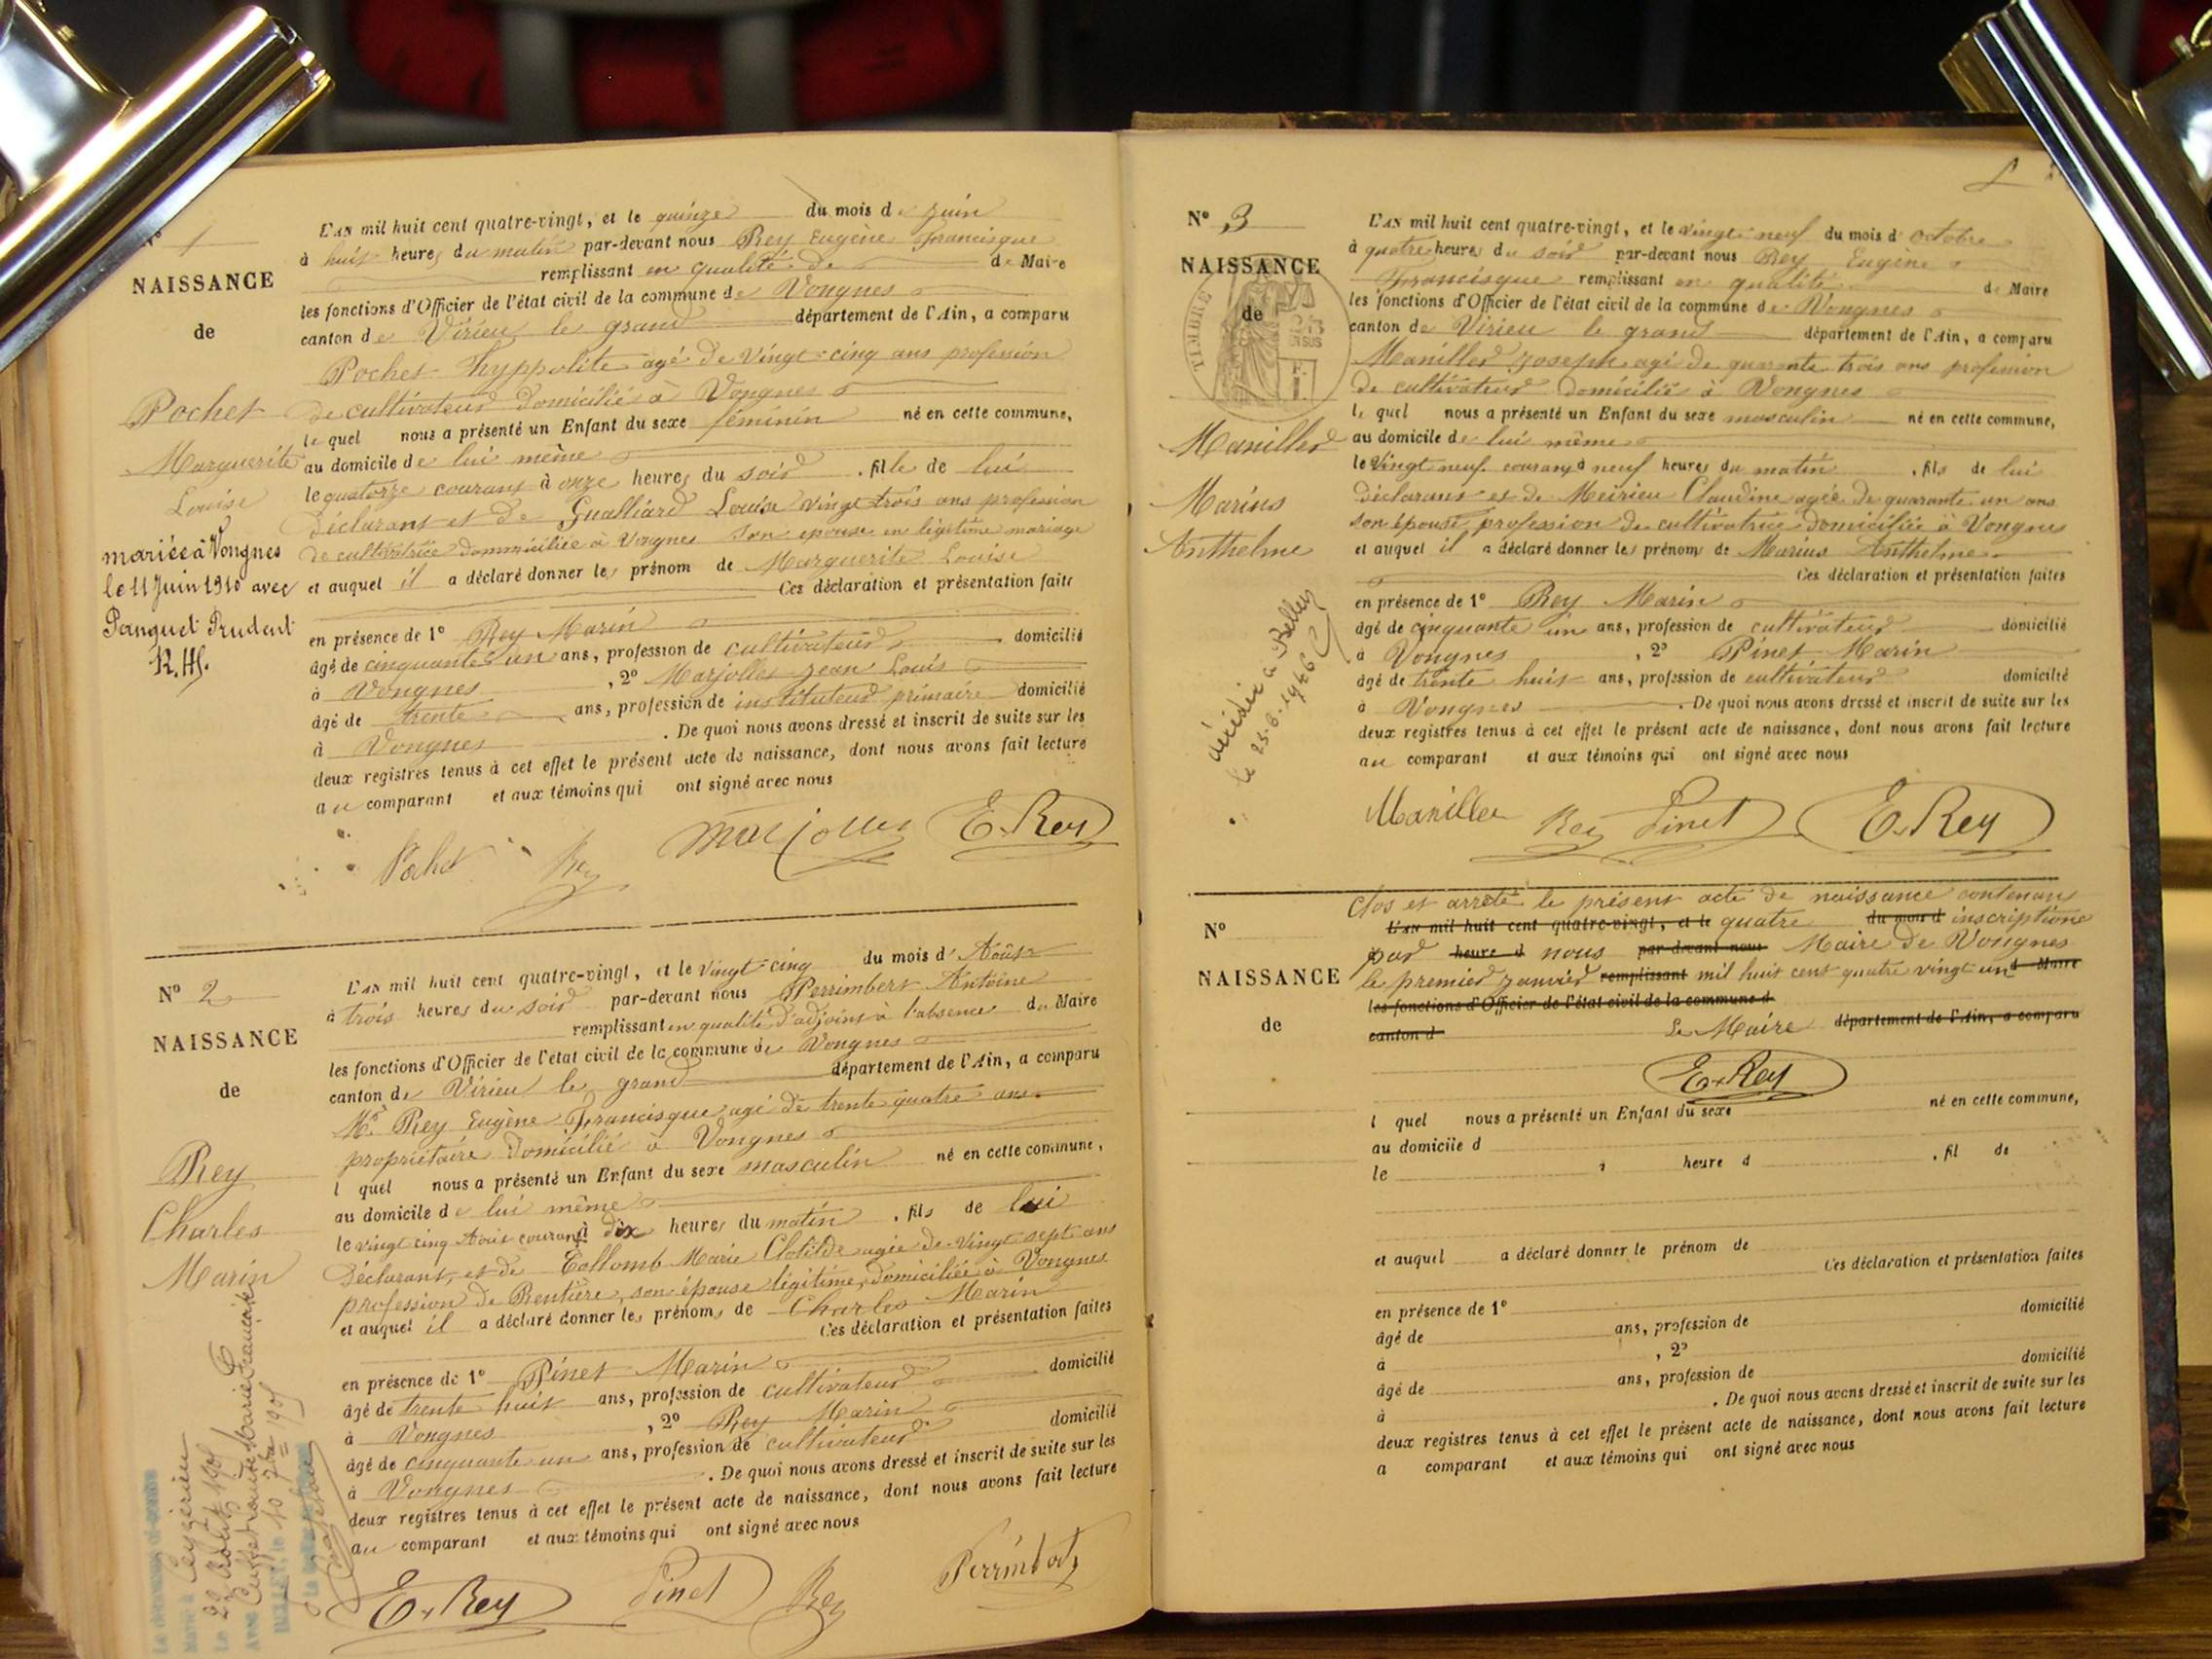 N° 1
NAISSANCE
de
Pochet
Marguerite
Louise
mariée à Vongnes
le 11 Juin 1910 avec
Panguet Prudent
L'AN mil huit cent quatre-vingt, et le quinze du mois de Juin
à huit heures du matin par-devant nous Rey Eugène Francisque
remplissant en qualité de de Maire
les fonctions d'Officier de l'état civil de la commune de Vongnes
canton de Virieu le grand département de l'Ain, a comparu
Pochet hyppolite agé de vingt-cinq ans profession
de cultivateur domicilié à Vongnes
lequel nous a présenté un Enfant du sexe féminin né en cette commune,
au domicile de lui même
le quatorze courant à onze heures du soir . fille de lui
déclarant et de Gualliard Louise vingt trois ans profession
de cultivatrice dommiciliée à Vongnes son epouse en légitime mariage
et auquel il a déclaré donner les prénom de Marguerite Louise
Ces déclaration et présentation faites
en présence de 1° Rey Marin
âgé de cinquante-un ans, profession de cultivateur domicilié
à Vongnes , 2° Marjollet Jean Louis
âgé de trente ans, profession de instituteur primaire domicilié
à Vongnes . De quoi nous avons dressé et inscrit de suite sur les
deux registres tenus à cet effet le présent acte de naissance, dont nous avons fait lecture
au comparant et aux témoins qui ont signé avec nous
Pochet Rey Marjollet E. Rey
N° 2
NAISSANCE
de
Rey
Charles
Marin
L'AN mil huit cent quatre-vingt, et le vingt-cinq du mois d'Août
à trois heures du soir par-devant nous Perrimbert Antoine
remplissant en qualité d'adjoint à l'absence du Maire
les fonctions d'Officier de l'état civil de la commune de Vongnes
canton de Virieu le grand département de l'Ain, a comparu
Mr Rey Eugène Francisque agé de trente quatre ans
propriétaire domicilié à Vongnes
l quel nous a présenté un Enfant du sexe masculin né en cette commune,
au domicile de lui même
le vingt cinq Août courant à dix heures du matin . fils de lui
déclarant, et de Collomb Marie Clotilde agée de vingt sept ans
profession de Rentière, son épouse légitime, domiciliée à Vongnes
et auquel il a déclaré donner les prénoms de Charles Marin
Ces déclaration et présentation faites
en présence de 1° Pinet Marin
âgé de trente huit ans, profession de cultivateur domicilié
à Vongnes , 2° Rey Marin
âgé de cinquante un ans, profession de cultivateur domicilié
à Vongnes . De quoi nous avons dressé et inscrit de suite sur les
deux registres tenus à cet effet le présent acte de naissance, dont nous avons fait lecture
au comparant et aux témoins qui ont signé avec nous
E. Rey Pinet Rey Perrimbert
Marié à Ceyzérieu
Marie Françoise
N° 3
NAISSANCE
de
TIMBRE
Maniller
Marius
Anthelme
décédé à Belley
le 23.6.1966
L'AN mil huit cent quatre-vingt, et le vingt-neuf du mois d'octobre
à quatre heures du soir par-devant nous Rey Eugène
Francisque remplissant en qualité de Maire
les fonctions d'Officier de l'état civil de la commune de Vongnes
canton de Virieu le grand département de l'Ain, a comparu
Maniller Joseph agé de quarante trois ans profession
de cultivateur domicilié à Vongnes
le quel nous a présenté un Enfant du sexe masculin né en cette commune,
au domicile de lui même
le vingt neuf courant à neuf heures du matin . fils de lui
déclarant et de Meirieu Claudine agée de quarante un ans
son épouse profession de cultivatrice domiciliée à Vongnes
et auquel il a déclaré donner les prénoms de Marius Anthelme
Ces déclaration et présentation faites
en présence de 1° Rey Marin
âgé de cinquante un ans, profession de cultivateur domicilié
à Vongnes , 2° Pinet Marin
âgé de trente huit ans, profession de cultivateur domicilié
à Vongnes . De quoi nous avons dressé et inscrit de suite sur les
deux registres tenus à cet effet le présent acte de naissance, dont nous avons fait lecture
au comparant et aux témoins qui ont signé avec nous
Maniller Rey Pinet E. Rey
N°
NAISSANCE
de
Clos et arrêté le présent acte de naissance contenant
L'AN mil huit cent quatre-vingt, et le quatre du mois d inscriptions
par heure d nous par-devant nous Maire de Vongnes
le premier janvier remplissant mil huit cent quatre vingt un d Maire
les fonctions d'Officier de l'état civil de la commune d
canton d Le Maire département de l'Ain, a comparu
E. Rey
l quel nous a présenté un Enfant du sexe né en cette commune,
au domicile d
le , heure d . fil de
et auquel a déclaré donner le prénom de
Ces déclaration et présentation faites
en présence de 1° domicilié
âgé de ans, profession de
à , 2°
âgé de ans, profession de domicilié
à . De quoi nous avons dressé et inscrit de suite sur les
deux registres tenus à cet effet le présent acte de naissance, dont nous avons fait lecture
a comparant et aux témoins qui ont signé avec nous